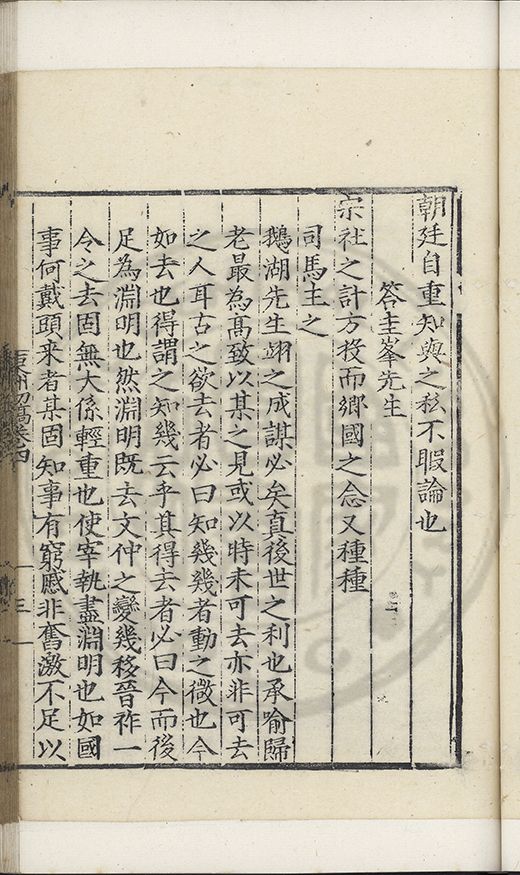 朝廷自重知與之私不暇論也
答圭峯先生
宗社之計方投而鄉國之念又種種
司馬主之
鵝湖先生翊之成謀必矣真後世之利也承喻歸
老最為高致以某之見或以時未可去亦非可去
之人耳古之欲去者必曰知幾幾者動之微也今
如去也得謂之知幾云乎其得去者必曰今而後
足為淵明也然淵明既去文仲之變幾移晉祚一
令之去固無大係輕重也使宰執盡淵明也如國
事何戴頭來者某固知事有窮蹙非奮激不足以
初稿卷四
三